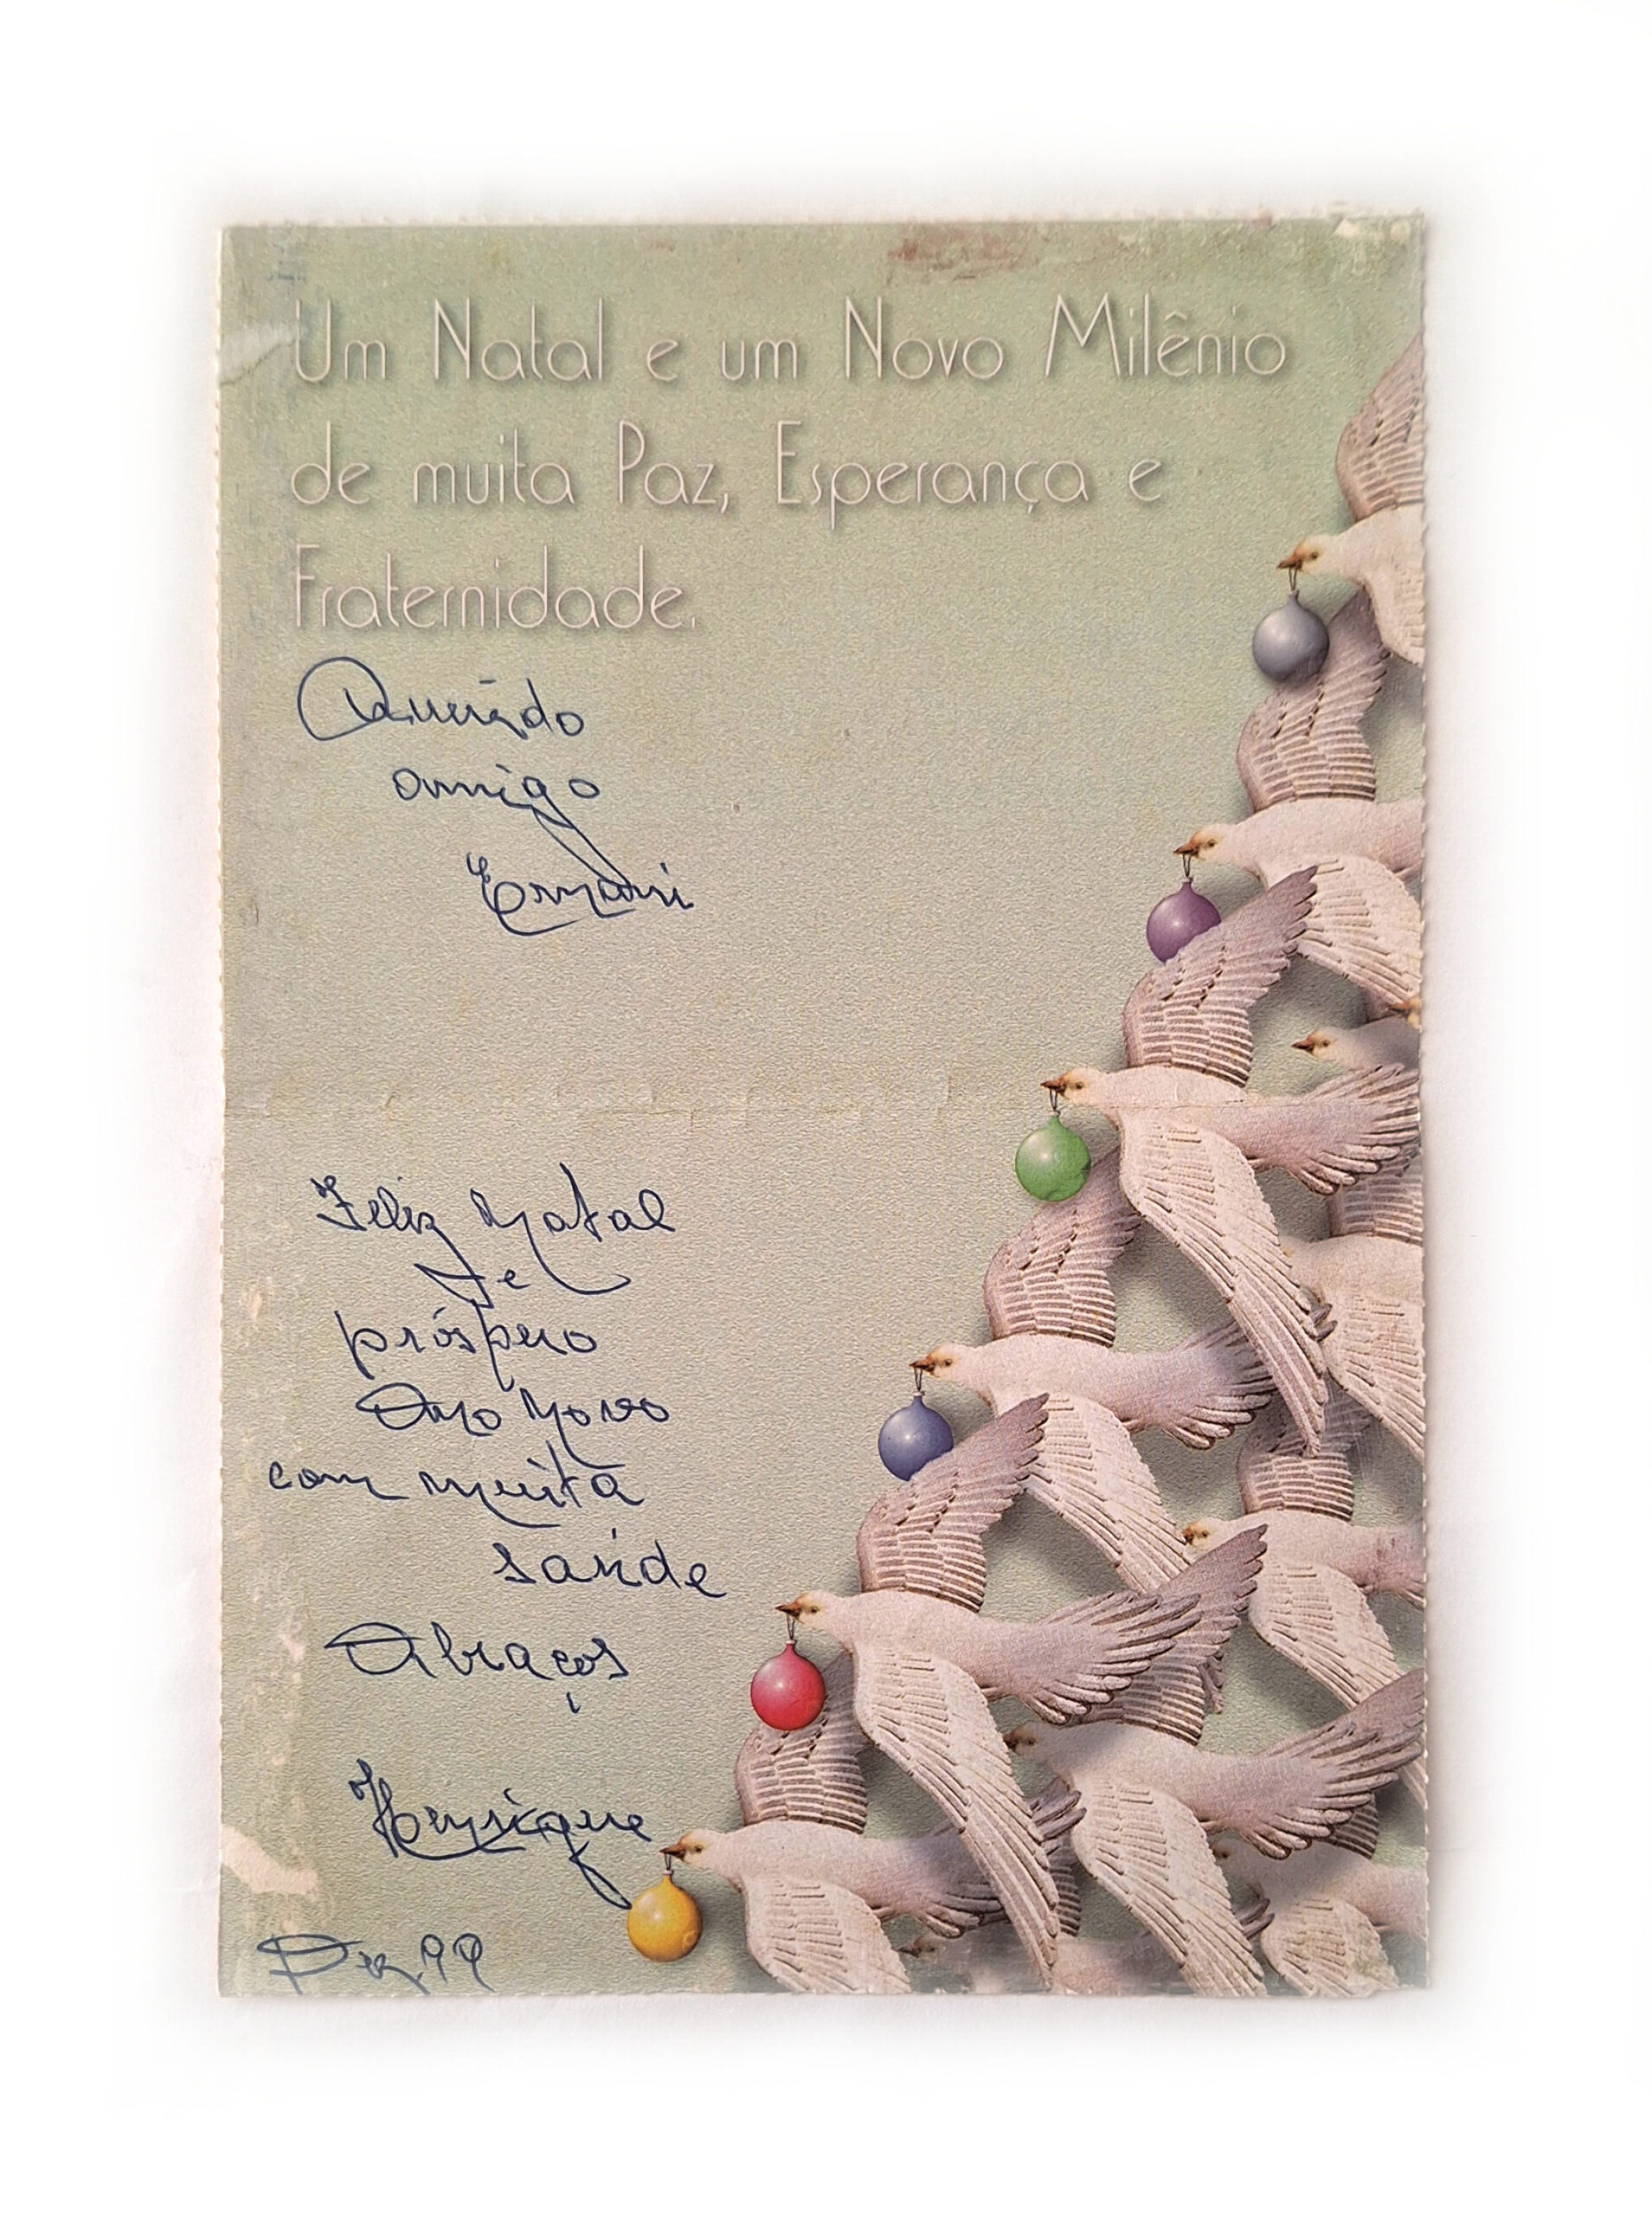 Um Natal e um Novo Milênio
de muita Paz, Esperança e
Fraternidade.
Querido
amigo
Ernani
Feliz Natal
e
próspero
Ano Novo
com muita
saúde
Abraços
Henrique
Dez 99